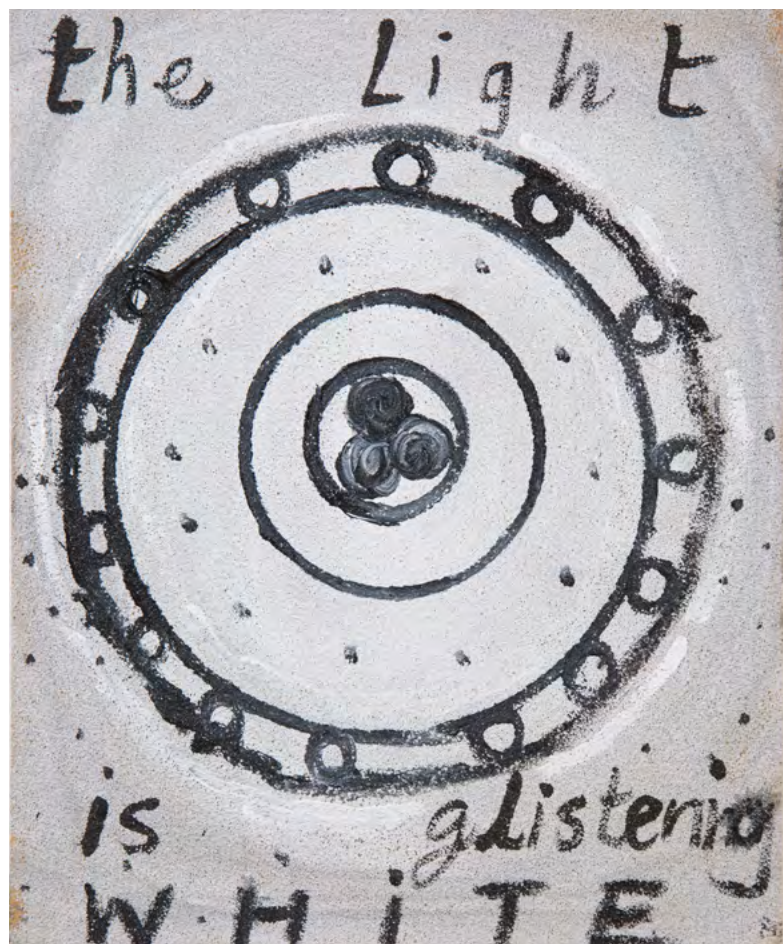 the Light
is glistening
WHiTE